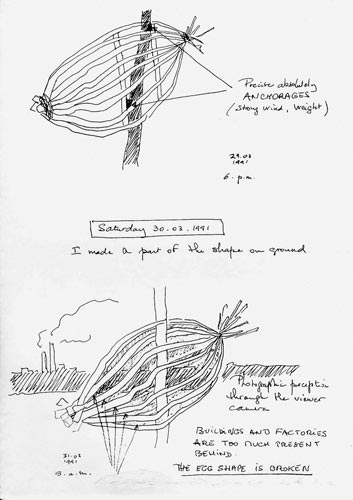 Precise absolutely
ANCHORAGES
(strong wind, weight)
29.03
1991
6. p.m.
Saturday 30.03.1991
I made a part of the shape on ground
Photographic perception
through the viewer
camera
BUILDINGS AND FACTORIES
ARE TOO MUCH PRESENT
BEHIND.
THE EGG SHAPE IS BROKEN
31.03
1991
8. a.m.